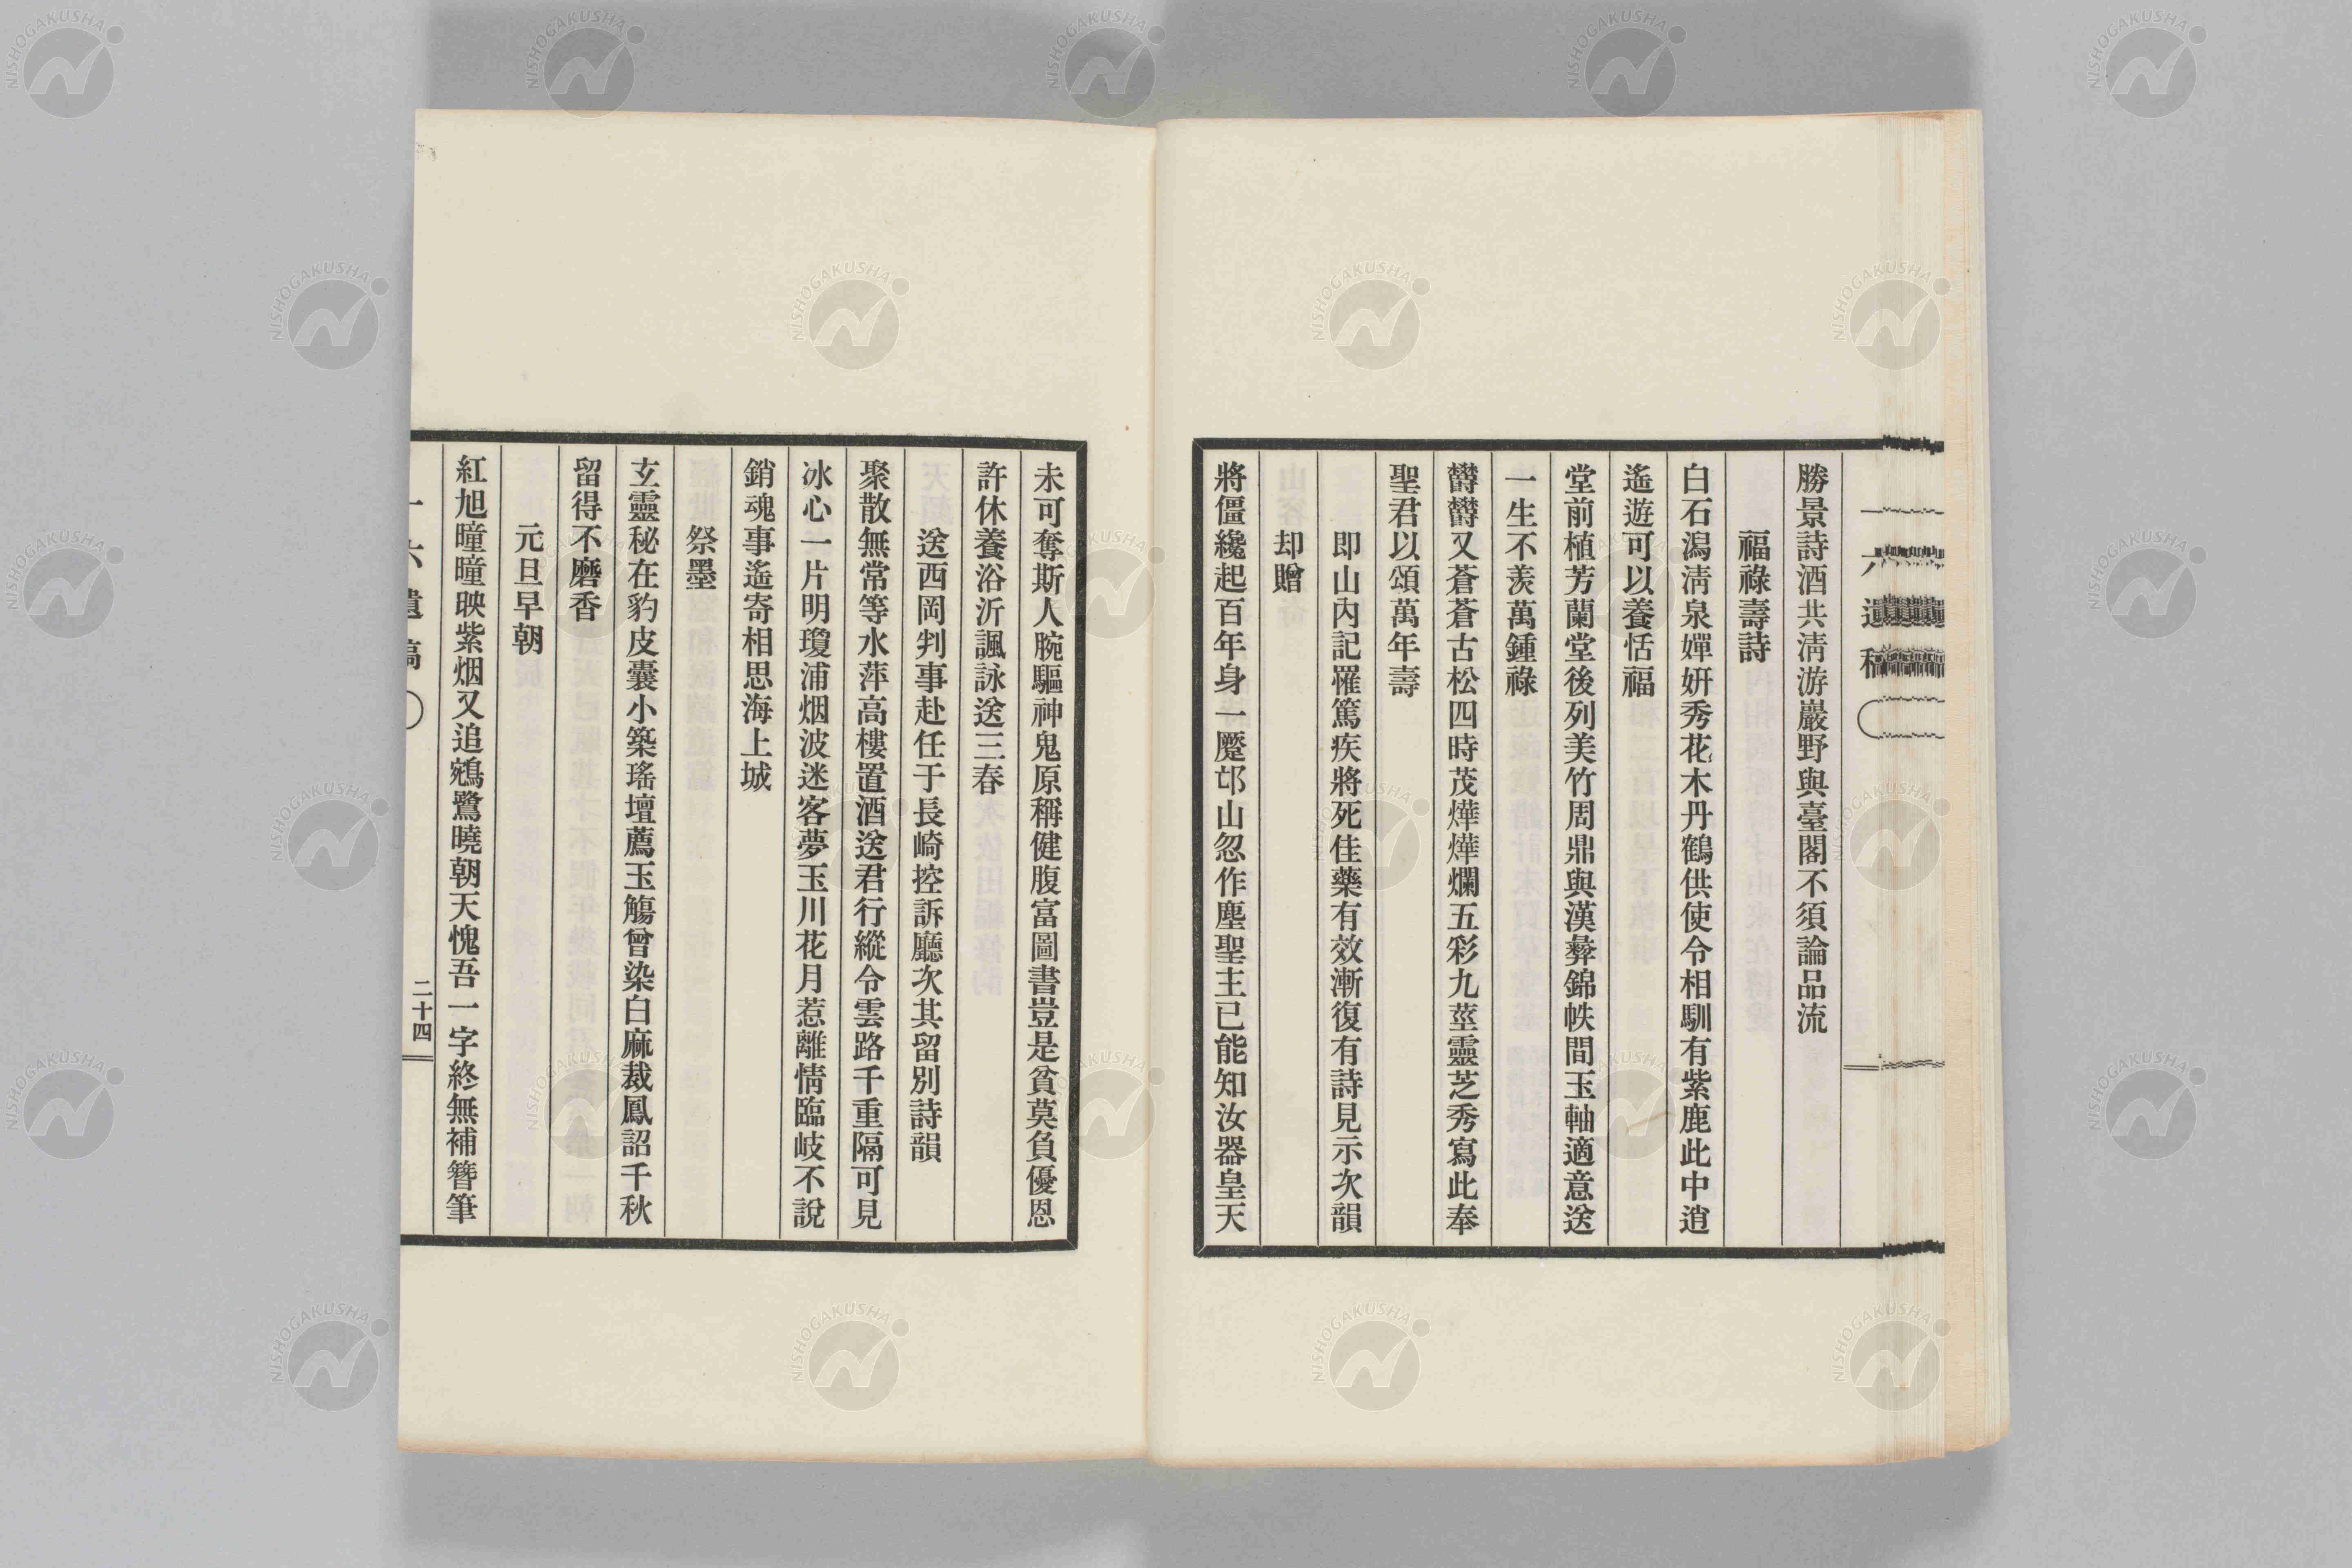 一六遺稿
勝景詩酒共淸游巖野與臺閣不須論品流
福祿壽詩
白石潟淸泉嬋姸秀花木丹鶴供使令相馴有紫鹿此中逍
遙遊可以養恬福
堂前植芳蘭堂後列美竹周鼎與漢彝錦帙間玉軸適意送
一生不羨萬鍾祿
欝欝又蒼蒼古松四時茂燁燁爛五彩九莖靈芝秀寫此奉
聖君以頌萬年壽
即山內記罹篤疾將死佳藥有效漸復有詩見示次韻
却贈
將僵纔起百年身一蹷邙山忽作塵聖主已能知汝器皇天
未可奪斯人腕驅神鬼原稱健腹富圖書豈是貧莫負優恩
許休養浴沂諷詠送三春
送西岡判事赴任于長崎控訴廳次其留別詩韻
聚散無常等水萍高樓置酒送君行縱令雲路千重隔可見
冰心一片明瓊浦烟波迷客夢玉川花月惹離情臨岐不說
銷魂事遙寄相思海上城
祭墨
玄靈秘在豹皮囊小築瑤壇薦玉觴曾染白麻裁鳳詔千秋
留得不磨香
元旦早朝
紅旭曈曈映紫烟又追鵷鷺曉朝天愧吾一字終無補簪筆
一六遺稿
二十四
NISHOGAKUSHA